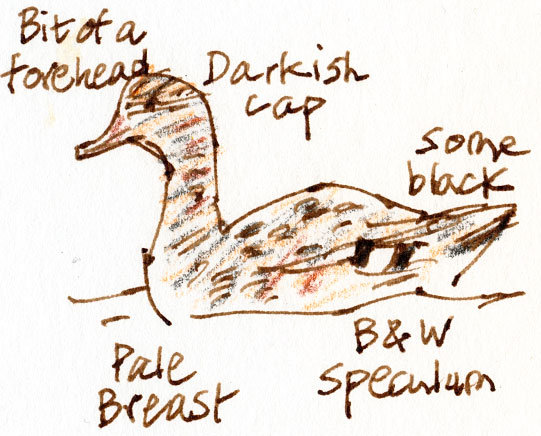 Bit of a
forehead
Darkish
cap
some
black
Pale
Breast
B&W
speculum